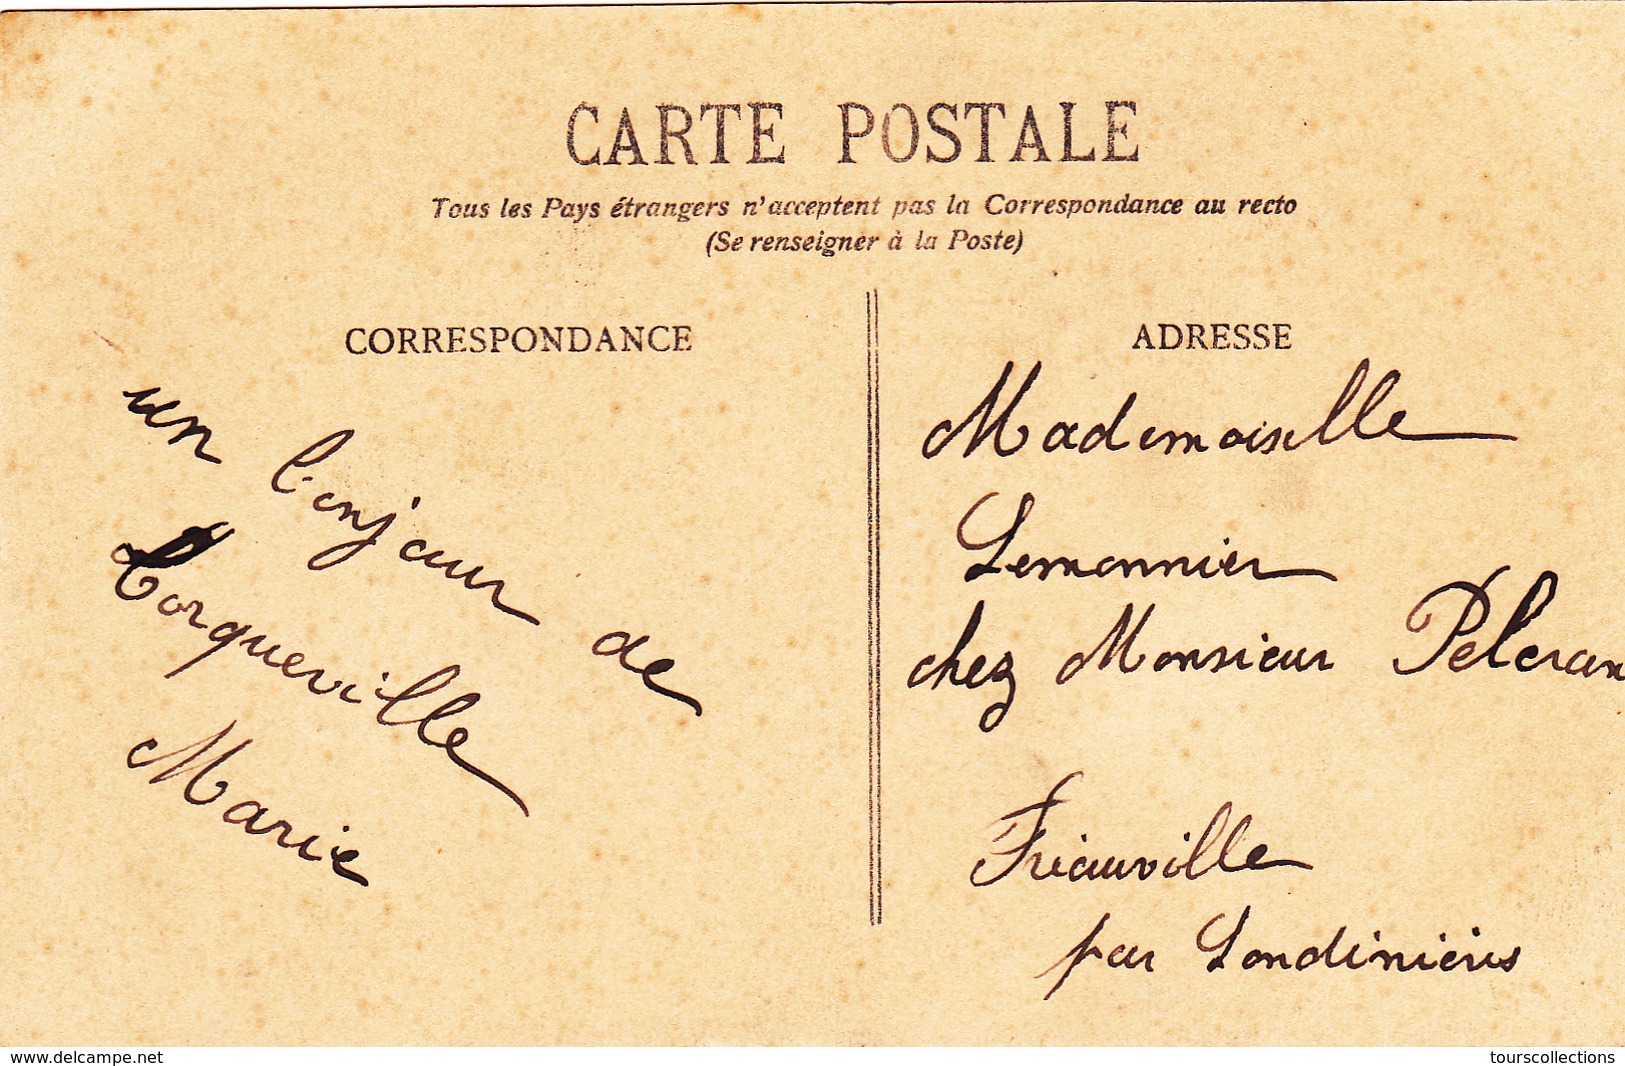 CARTE POSTALE
Tous les Pays étrangers n'acceptent pas la Correspondance au recto
(Se renseigner à la Poste)
CORRESPONDANCE
un bonjour de
Torqueville
Marie
ADRESSE
Mademoiselle
Lemonnier
chez Monsieur Peleran
Friauville
par Londinières
www.delcampe.net
tourscollections